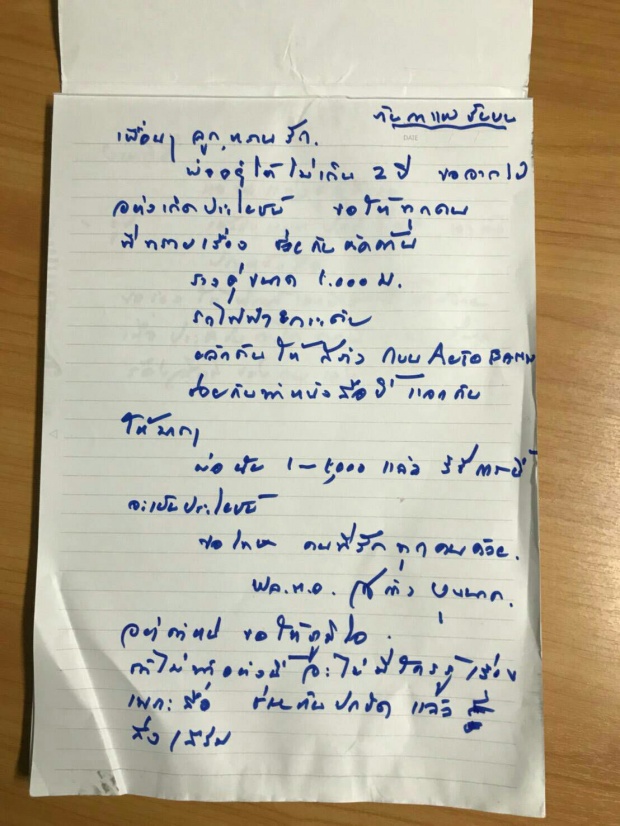 เพื่อนๆ ลูก หลาน รัก.
พ่ออยู่ได้ไม่เกิน 2 ปี ขอจากไป
อย่างเกิดประโยชน์ ขอให้ทุกคน
ที่ทราบเรื่อง ช่วยกัน
รางคู่ขนาด 1.000 ม.
รถไฟฟ้ายกระดับ
ผลักดันให้ วิ่งบน AUTO BAHN
ช่วยกันทำหนังสือนี้ แจกกัน
ให้มากๆ
พ่อนับ 1 – แล้ว วิธีการนี้
จะเป็นประโยชน์
ขอโทษ คนที่รักทุกคนด้วย.
พล.ท.อ.
อย่าตำหนิ ขอให้ภูมิใจ.
ถ้าไม่ทำอย่างนี้ จะไม่มีใครรู้เรื่อง
เพราะสื่อ ช่วยกันปกปิด แล้ว